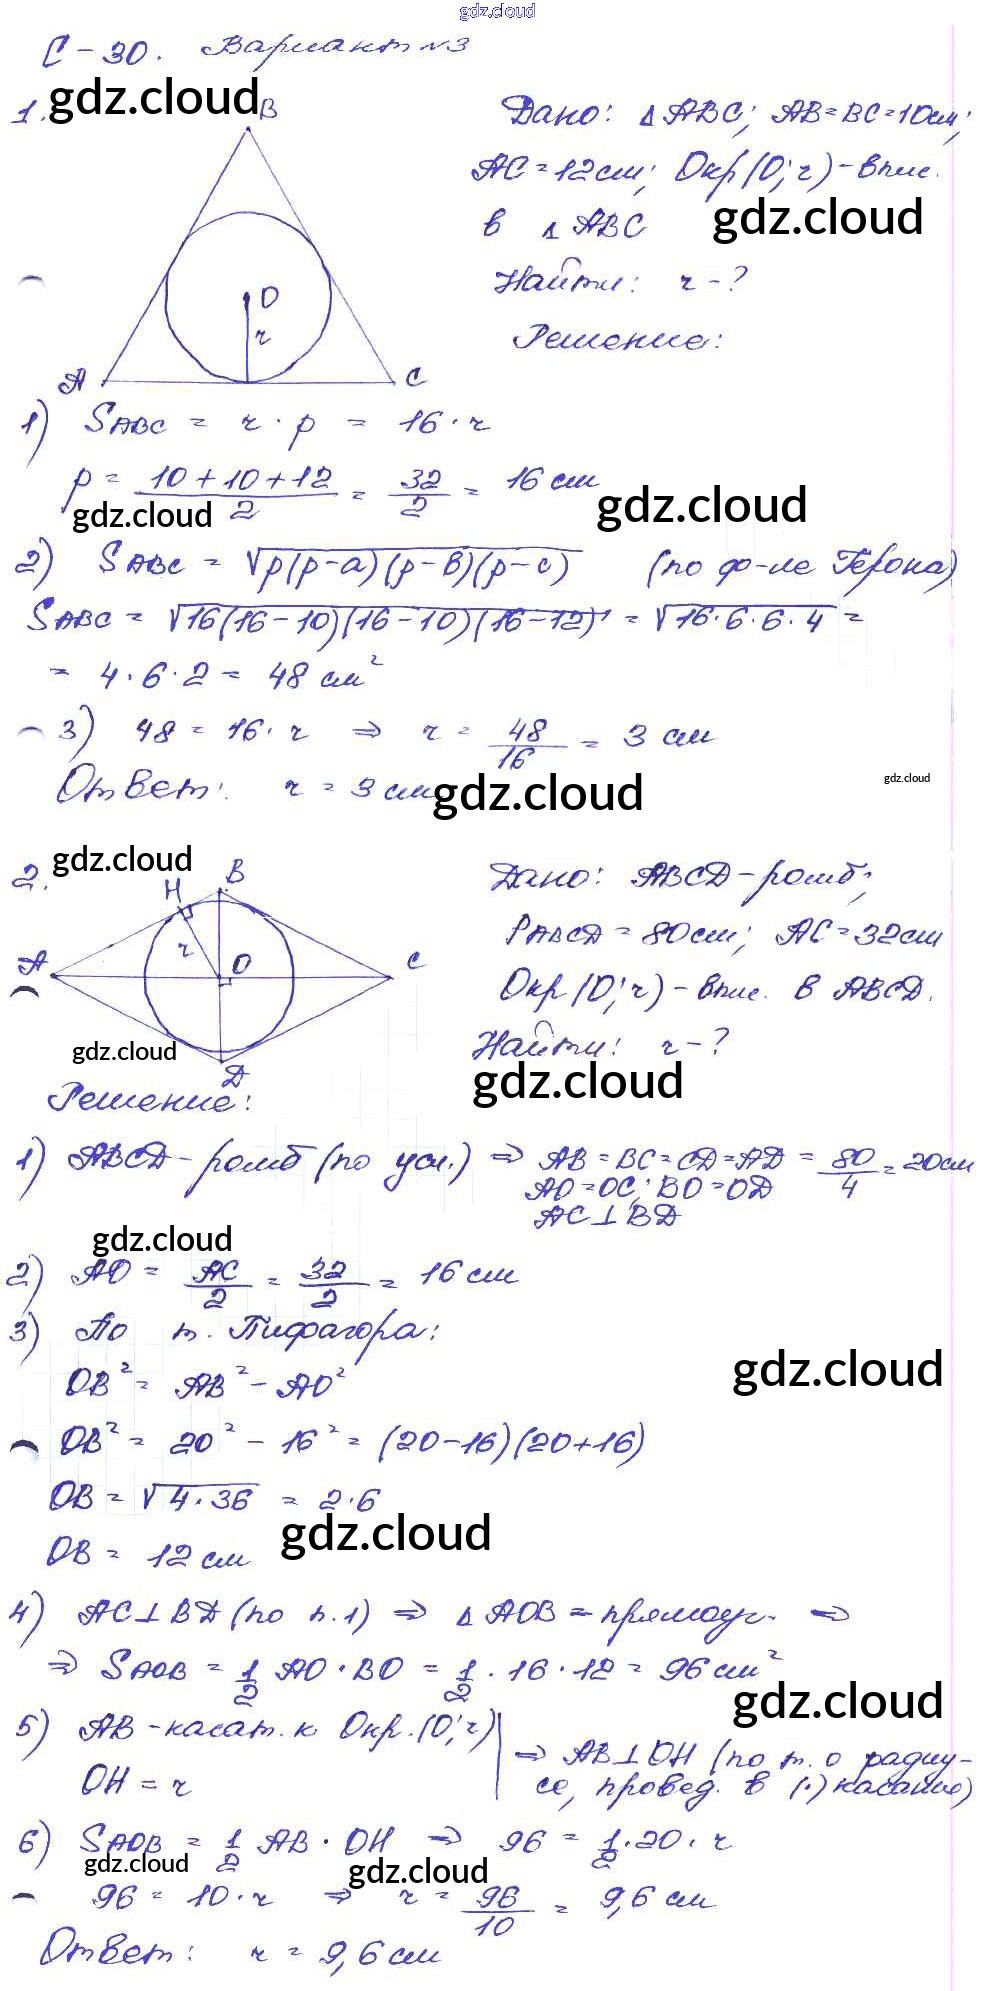 gdz.cloud
С-30. Вариант №3
gdz.cloud
1.
B
O
r
A
C
Дано: △ABC; AB=BC=10см;
AC=12см; Окр(O;r)-впис.
в △ABC
gdz.cloud
Найти: r-?
Решение:
1) SABC = r·p = 16·r
p = (10+10+12)/2 = 32/2 = 16 см
gdz.cloud
gdz.cloud
2) SABC = √p(p-a)(p-b)(p-c) (по ф-ле Герона)
SABC = √16(16-10)(16-10)(16-12) = √16·6·6·4 =
= 4·6·2 = 48 см²
3) 48 = 16·r ⇒ r = 48/16 = 3 см
Ответ: r = 3 см
gdz.cloud
gdz.cloud
gdz.cloud
2.
H
B
r
O
A
C
D
Дано: ABCD-ромб;
PABCD = 80см; AC=32см
Окр(O;r)-впис. в ABCD.
Найти: r-?
gdz.cloud
gdz.cloud
Решение:
1) ABCD-ромб (по усл.) ⇒ AB=BC=CD=AD = 80/4 = 20см
AO=OC; BO=OD
AC⊥BD
gdz.cloud
2) AO = AC/2 = 32/2 = 16 см
3) По т. Пифагора:
gdz.cloud
OB² = AB² - AO²
OB² = 20² - 16² = (20-16)(20+16)
OB = √4·36 = 2·6
gdz.cloud
OB = 12 см
4) AC⊥BD (по п.1) ⇒ △AOB = прямоуг. ⇒
⇒ SAOB = 1/2 AO·BO = 1/2·16·12 = 96 см²
gdz.cloud
5) AB-касат. к Окр.(O;r)
OH = r
⇒ AB⊥OH (по т. о радиу-
се, провед. в (·) касание)
6) SAOB = 1/2 AB·OH ⇒ 96 = 1/2·20·r
gdz.cloud
gdz.cloud
96 = 10·r ⇒ r = 96/10 = 9,6 см
Ответ: r = 9,6 см